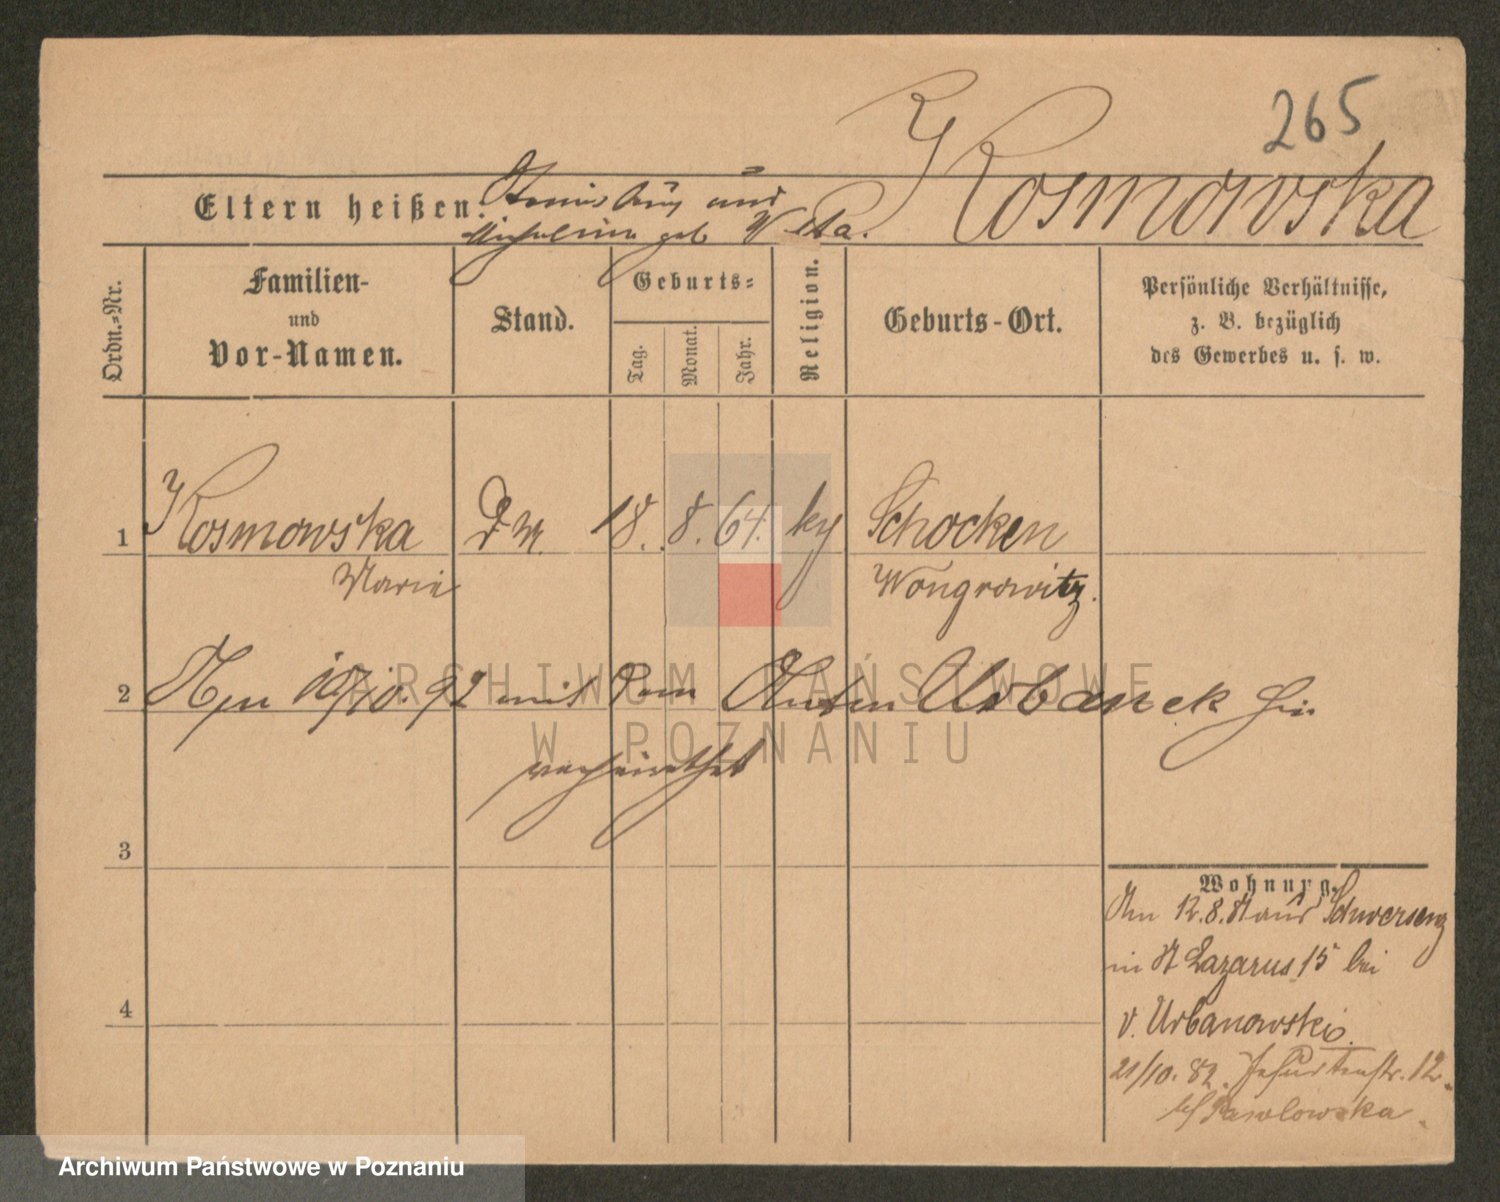 265
Kosmowska
Eltern heißen: Stanislaus und
Michalina geb Westa.
Ordn.-Nr.
Familien-
und
Vor-Namen.
Stand.
Geburts-
Tag.
Monat.
Jahr.
Religion.
Geburts-Ort.
Persönliche Verhältnisse,
z. B. bezüglich
des Gewerbes u. s. w.
1 Kosmowska 18. 8. 64. Schocken
Marie Wongrowitz.
2 Am 10. 92 mit dem Urbanek hier
verheirathet
3
4
Wohnung.
Am 12.8. aus Schwersenz
in St Lazarus 15 bei
v. Urbanowski.
21/10. 82. Jesuitenstr. 12.
bei Pawlowska.
ARCHIWUM PAŃSTWOWE
W POZNANIU
Archiwum Państwowe w Poznaniu